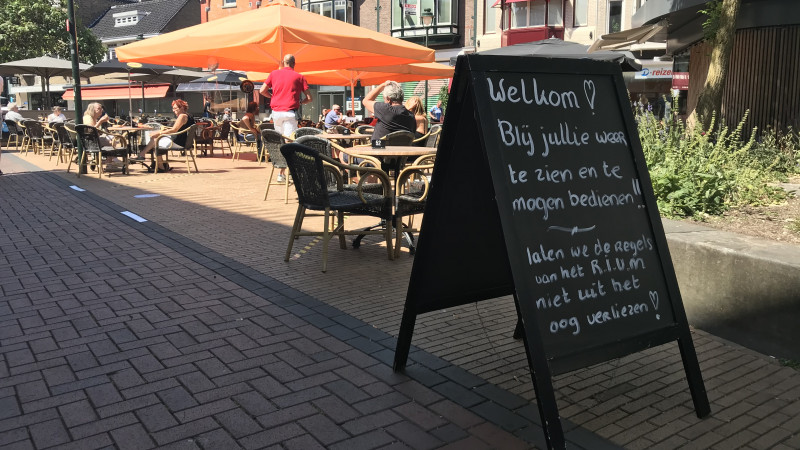 Welkom! ♡
Blij jullie weer
te zien en te
mogen bedienen!!
laten we de regels
van het R.I.V.M
niet uit het
oog verliezen! ♡
D-reizen